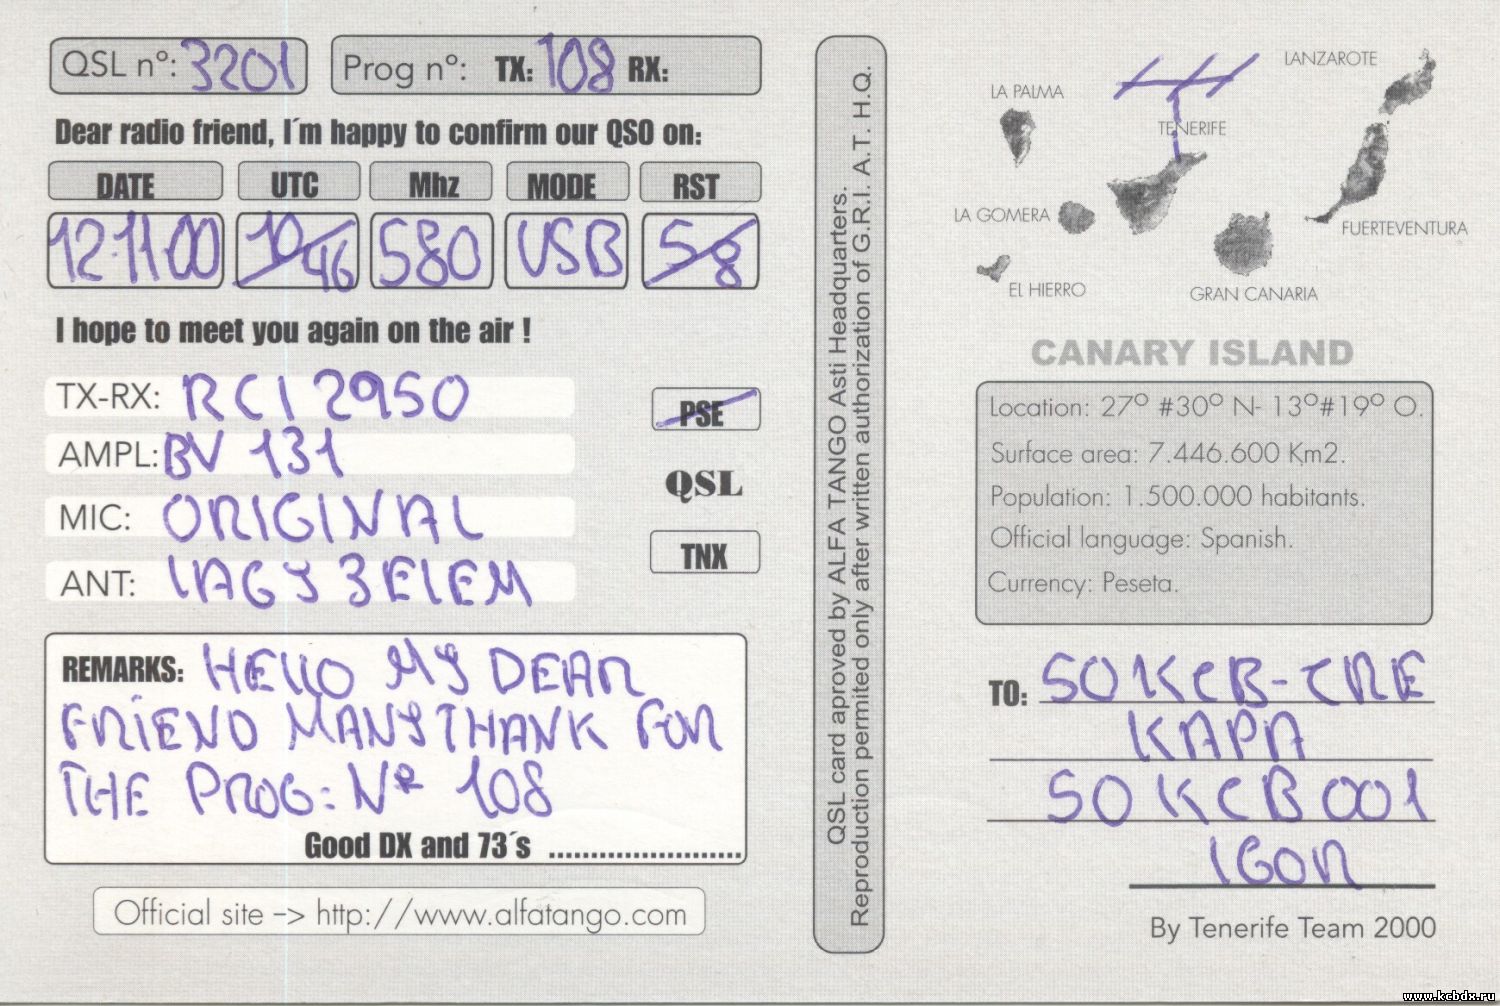 QSL n°: 3201
Prog n°: TX: 108 RX:
Dear radio friend, I´m happy to confirm our QSO on:
DATE UTC Mhz MODE RST
12-11-00 10/46 580 USB 5/8
I hope to meet you again on the air !
TX-RX: RCI 2950
AMPL: BV 131
MIC: ORIGINAL
ANT: IAGY 3 ELEM
PSE
QSL
TNX
REMARKS: HELLO MY DEAR
FRIEND MANY THANK FOR
THE PROG: Nº 108
Good DX and 73´s ........................
Official site -> http://www.alfatango.com
QSL card aproved by ALFA TANGO Asti Headquarters.
Reproduction permited only after written authorization of G.R.I. A.T. H.Q.
LANZAROTE
LA PALMA
TENERIFE
LA GOMERA
FUERTEVENTURA
EL HIERRO
GRAN CANARIA
CANARY ISLAND
Location: 27º #30º N- 13º#19º O.
Surface area: 7.446.600 Km2.
Population: 1.500.000 habitants.
Official language: Spanish.
Currency: Peseta.
TO: 50 KCB-TRE
KAPA
50 KCB 001
IGOR
By Tenerife Team 2000
www.kcbdx.ru